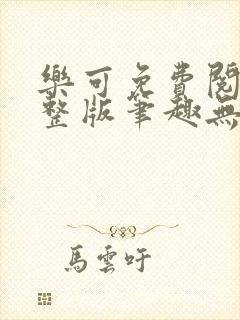 樂可免費閱
整版筆趣無
馬雲吁